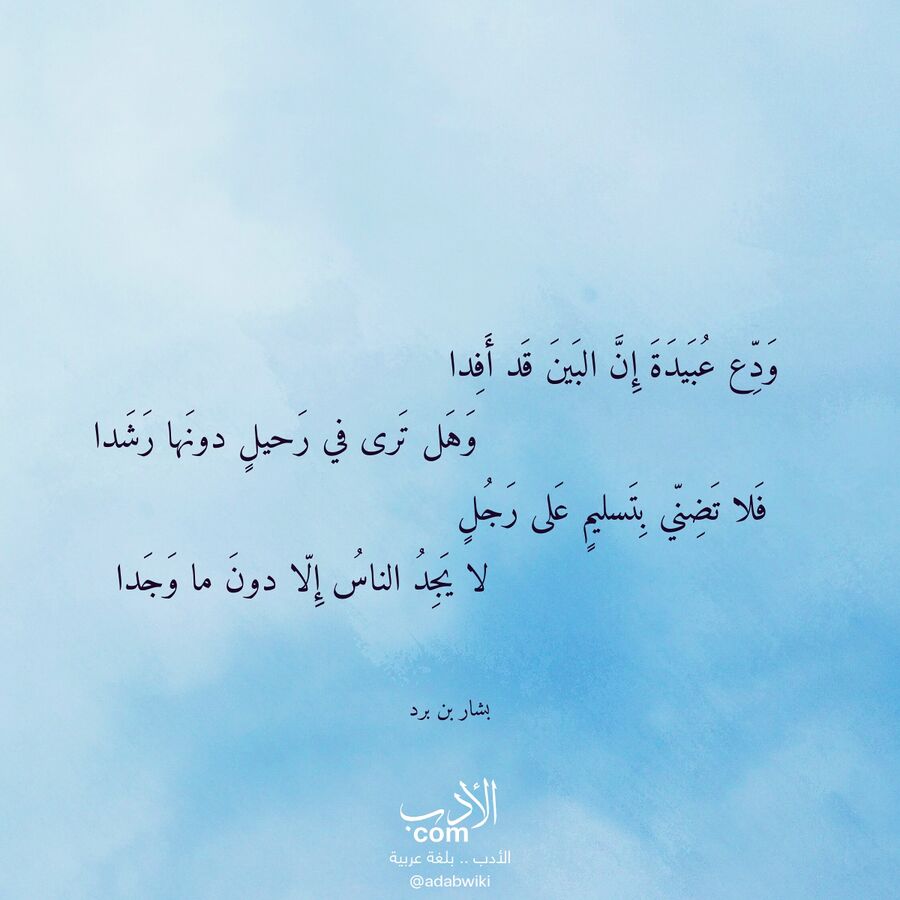 وَدِّع عُبَيدَةَ إِنَّ البَينَ قَد أَفِدا
وَهَل تَرى في رَحيلٍ دونَها رَشَدا
فَلا تَضِنّي بِتَسليمٍ عَلى رَجُلٍ
لا يَجِدُ الناسُ إِلّا دونَ ما وَجَدا
بشار بن برد
الأدب
com
الأدب .. بلغة عربية
@adabwiki